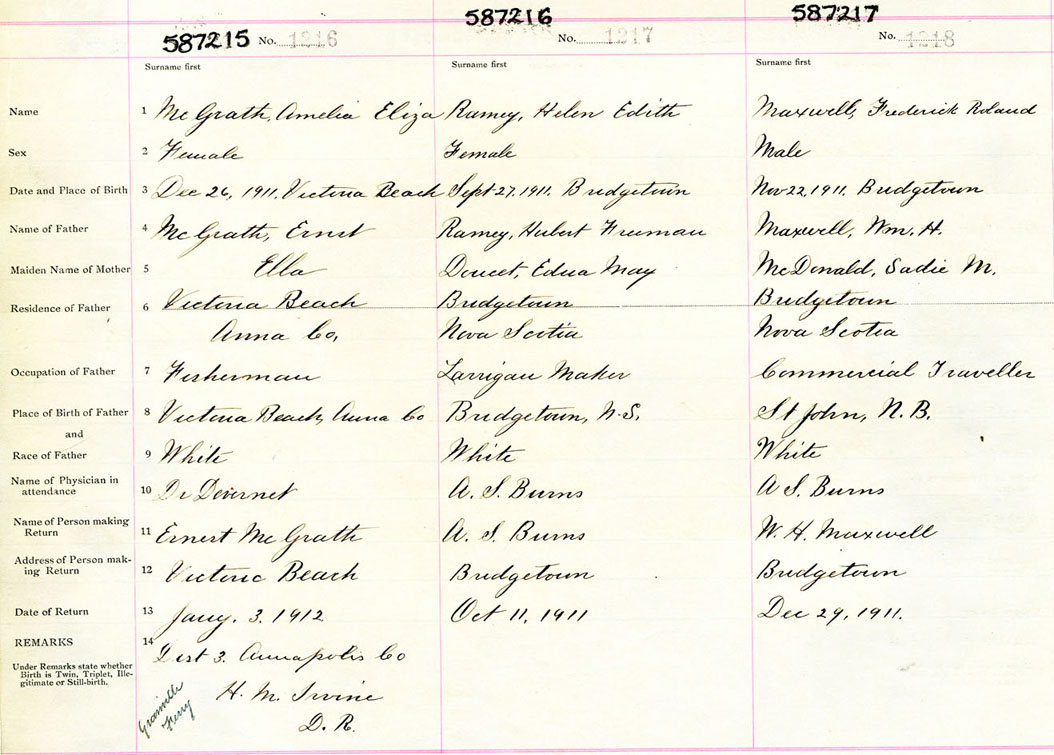 587215 No. 1216 587216 No. 1217 587217 No. 1218
Surname first Surname first Surname first
Name 1 McGrath, Amelia Eliza Ramey, Helen Edith Maxwell, Frederick Roland
Sex 2 Female Female Male
Date and Place of Birth 3 Dec 26, 1911. Victoria Beach Sept 27. 1911. Bridgetown Nov 22, 1911. Bridgetown
Name of Father 4 McGrath, Ernst Ramey, Hubert Freeman Maxwell, Wm. H.
Maiden Name of Mother 5 Ella Doucet, Edna May McDonald, Sadie M.
Residence of Father 6 Victoria Beach Bridgetown Bridgetown
Anna Co, Nova Scotia Nova Scotia
Occupation of Father 7 Fisherman Larrigan Maker Commercial Traveller
Place of Birth of Father 8 Victoria Beach, Anna Co Bridgetown, N.S. St John, N.B.
and
Race of Father 9 White White White
Name of Physician in
attendance 10 Dr A. S. Burns A S. Burns
Name of Person making
Return 11 Ernest McGrath A. S. Burns W. H. Maxwell
Address of Person mak-
ing Return 12 Victoria Beach Bridgetown Bridgetown
Date of Return 13 Jany. 3. 1912 Oct 11, 1911 Dec 29, 1911.
REMARKS 14 Dist 3. Annapolis Co
Under Remarks state whether
Birth is Twin, Triplet, Ille-
gitimate or Still-birth.
H. M. Irvine
D. R.
Granville
Ferry